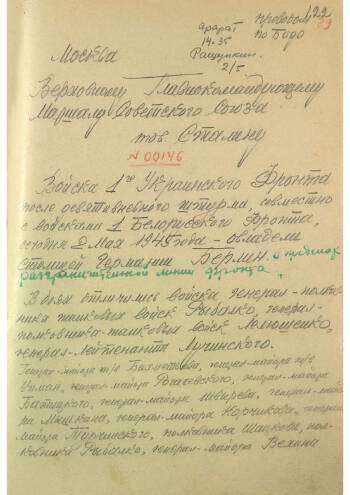 проводом 22
по Бодо
арарат
14-35
Ращупкин
2/5
Москва
Верховному Главнокомандующему
Маршалу Советского Союза
тов. Сталину
N 00146
Войска 1го Украинского Фронта
после девятидневного штурма, совместно
с войсками 1 Белорусского Фронта,
сегодня 2 мая 1945 года - овладели
столицей Германии Берлин. в пределах
разграничительной линии фронта.
В боях отличились войска генерал-полков-
ника танковых войск Рыбалко, генерал-
полковника танковых войск Лелюшенко,
генерал-лейтенанта Лучинского.
Генерал-майора т/в Бахметьева, генерал-майора т/в
генерал-майора Рогачевского, генерал-майора
Батицкого, генерал-майора Шварева, генерал-май
ора Мышкина, генерал-майора Корчикова, генерал-
майора Турчинского, полковника Шацкова, пол-
ковника Рыбалко, генерал-майора Вехина